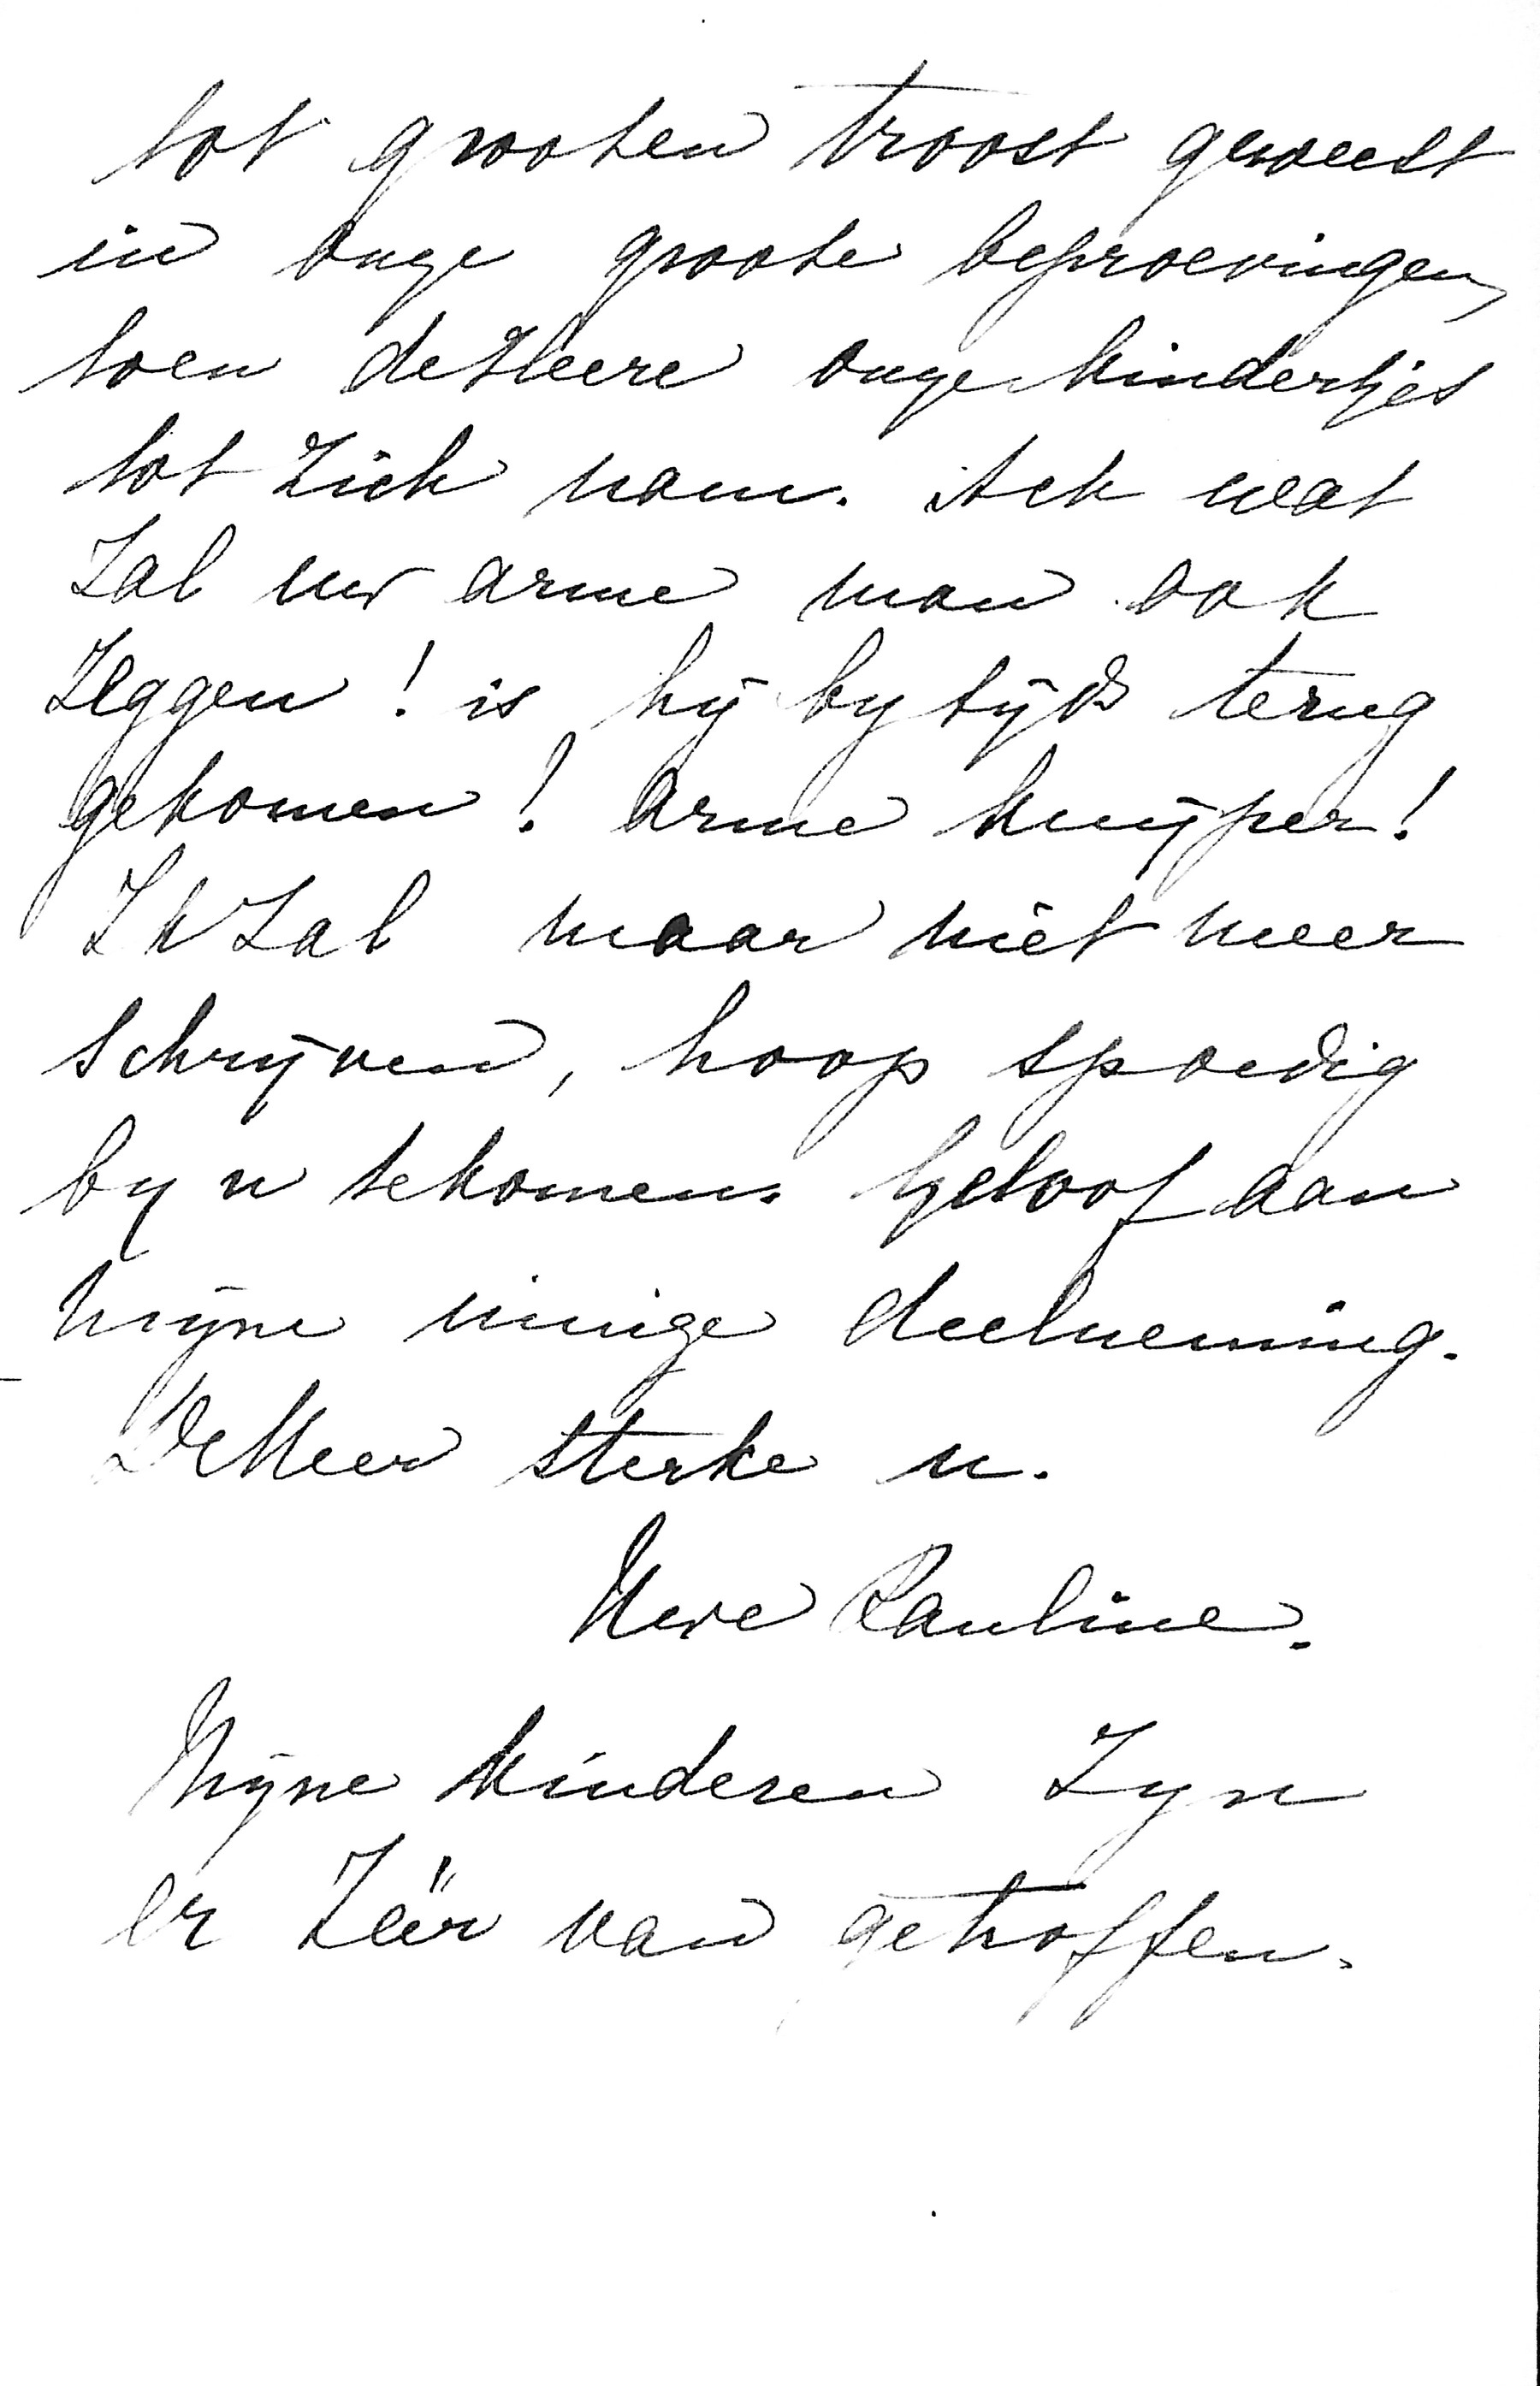 tot grooten troost geweest
in onze groote beproevingen,
toen de Heere onze kindertjes
tot Zich nam. Ach wat
Zal uw arme man ook
Zeggen! is hij by tijds terug
gekomen! Arme Kuijper!
Ik Zal maar niet meer
schrijven, hoop spoedig
by u te komen. Geloof aan
mijne innige deelneming.
De Heer sterke u.
Uwe Pauline.
Mijne kinderen Zyn
er Zéér van getroffen.